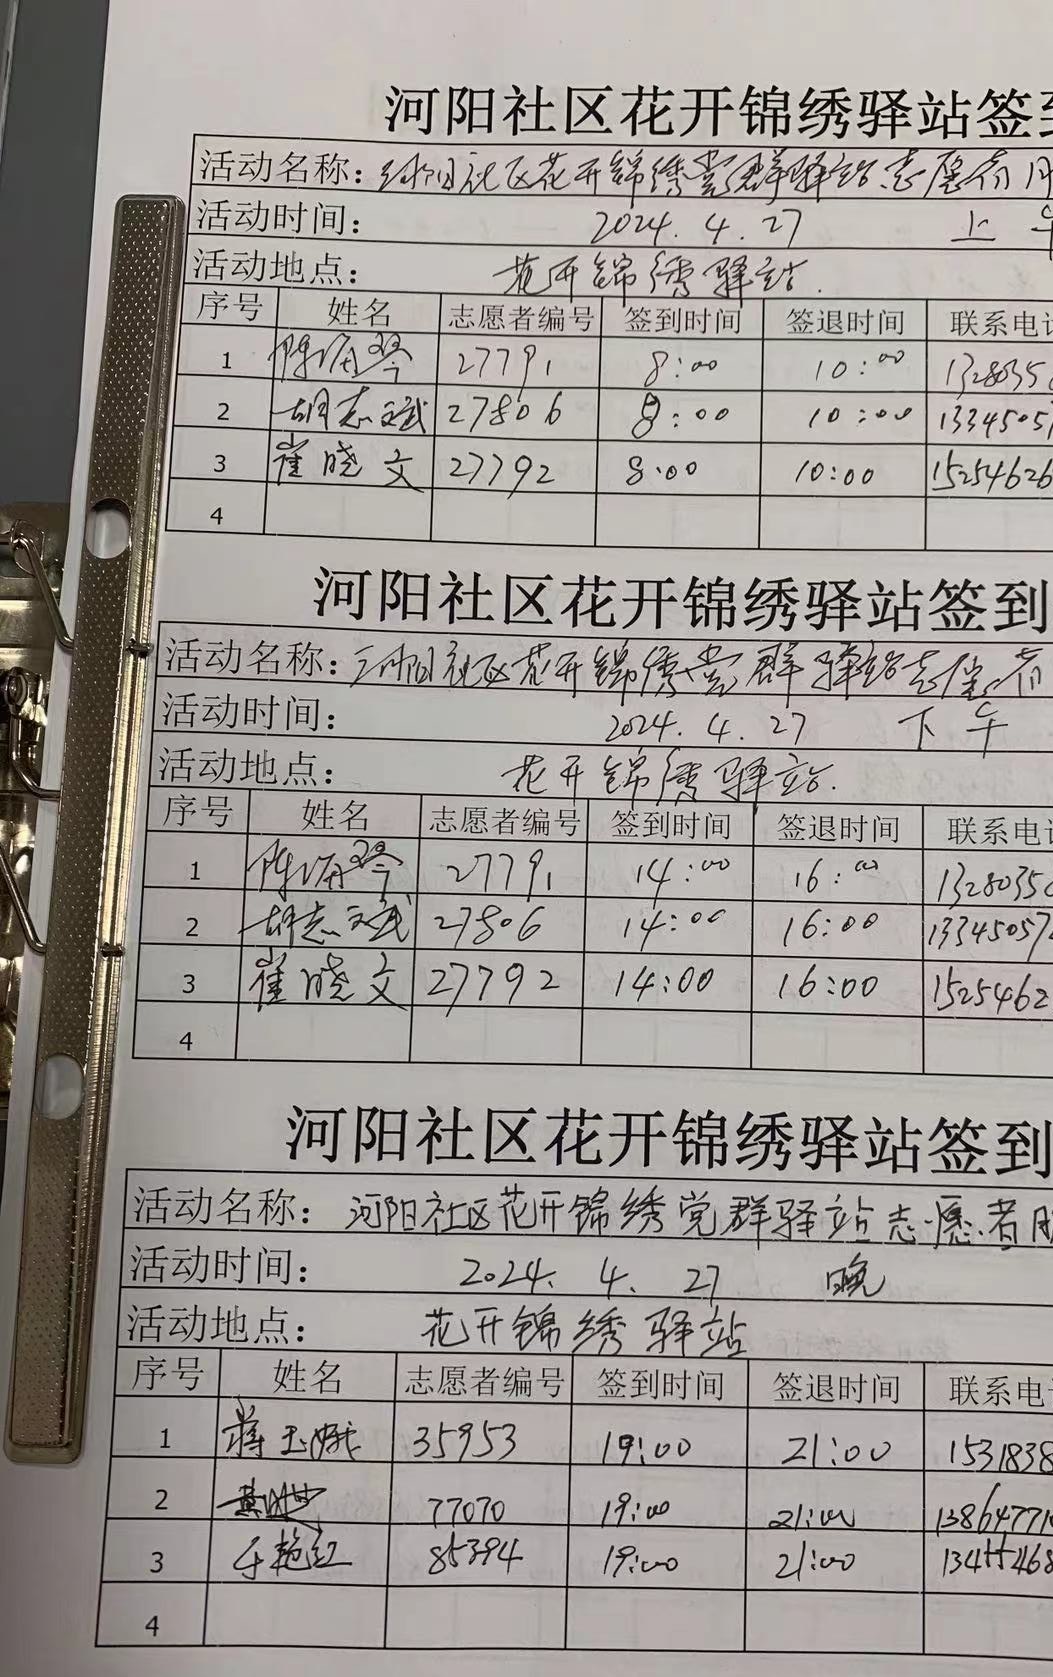 河阳社区花开锦绣驿站签到
活动名称：河阳社区花开锦绣党群驿站志愿者服
活动时间： 2024.4.27 上午
活动地点： 花开锦绣驿站.
序号 姓名 志愿者编号 签到时间 签退时间 联系电话
1 27791 8:00 10:00 1328035
2 胡志斌 27806 8:00 10:00 1334505
3 崔晓文 27792 8:00 10:00 15254626
4
河阳社区花开锦绣驿站签到
活动名称：河阳社区花开锦绣党群驿站志愿者
活动时间： 2024.4.27 下午
活动地点： 花开锦绣驿站.
序号 姓名 志愿者编号 签到时间 签退时间 联系电话
1 27791 14:00 16:00 1328035
2 胡志斌 27806 14:00 16:00 13345057
3 崔晓文 27792 14:00 16:00 1525462
4
河阳社区花开锦绣驿站签到
活动名称：河阳社区花开锦绣党群驿站志愿者服
活动时间： 2024.4.27 晚
活动地点： 花开锦绣驿站
序号 姓名 志愿者编号 签到时间 签退时间 联系电
1 蒋玉娥 35953 19:00 21:00 1531838
2 77070 19:00 21:00 13864771
3 于艳红 85394 19:00 21:00 13455468
4